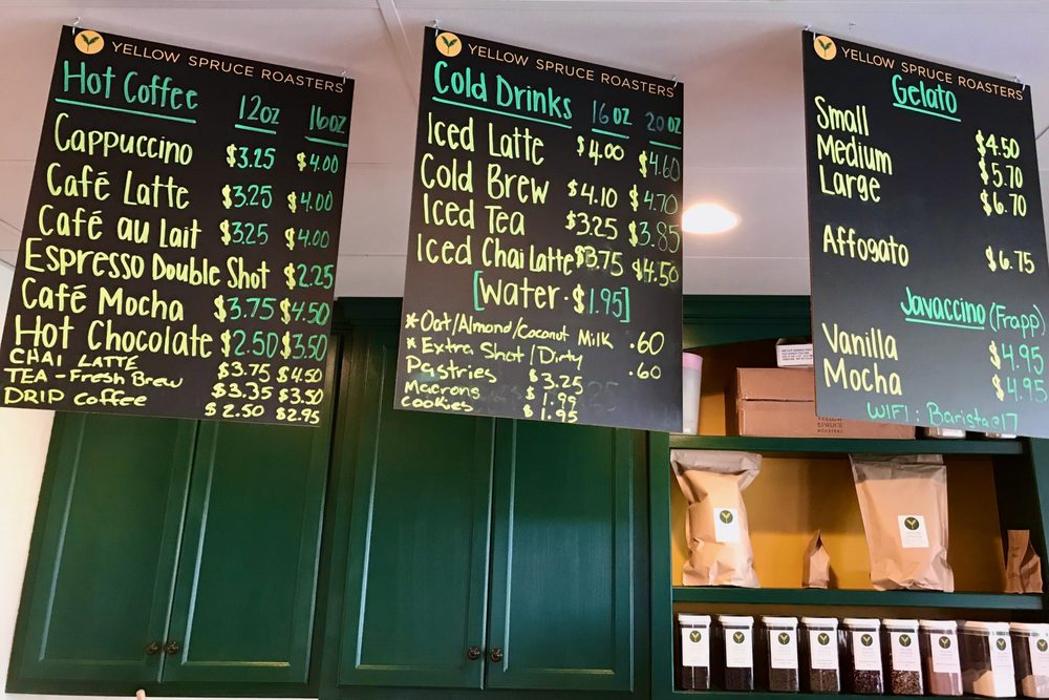 YELLOW SPRUCE ROASTERS
Hot Coffee 12oz 16oz
Cappuccino $3.25 $4.00
Café Latte $3.25 $4.00
Café au Lait $3.25 $4.00
Espresso Double Shot $2.25
Café Mocha $3.75 $4.50
Hot Chocolate $2.50 $3.50
CHAI LATTE $3.75 $4.50
TEA - Fresh Brew $3.35 $3.50
DRIP Coffee $2.50 $2.95
YELLOW SPRUCE ROASTERS
Cold Drinks 16 oz 20 oz
Iced Latte $4.00 $4.60
Cold Brew $4.10 $4.70
Iced Tea $3.25 $3.85
Iced Chai Latte $3.75 $4.50
[Water · $1.95]
* Oat/Almond/Coconut Milk .60
* Extra Shot/Dirty .60
Pastries $3.25
Macrons $1.99
Cookies $1.95
YELLOW SPRUCE ROASTERS
Gelato
Small $4.50
Medium $5.70
Large $6.70
Affogato $6.75
Javaccino (Frapp)
Vanilla $4.95
Mocha $4.95
WIFI: Barista@17
YELLOW
SPRUCE
ROASTERS